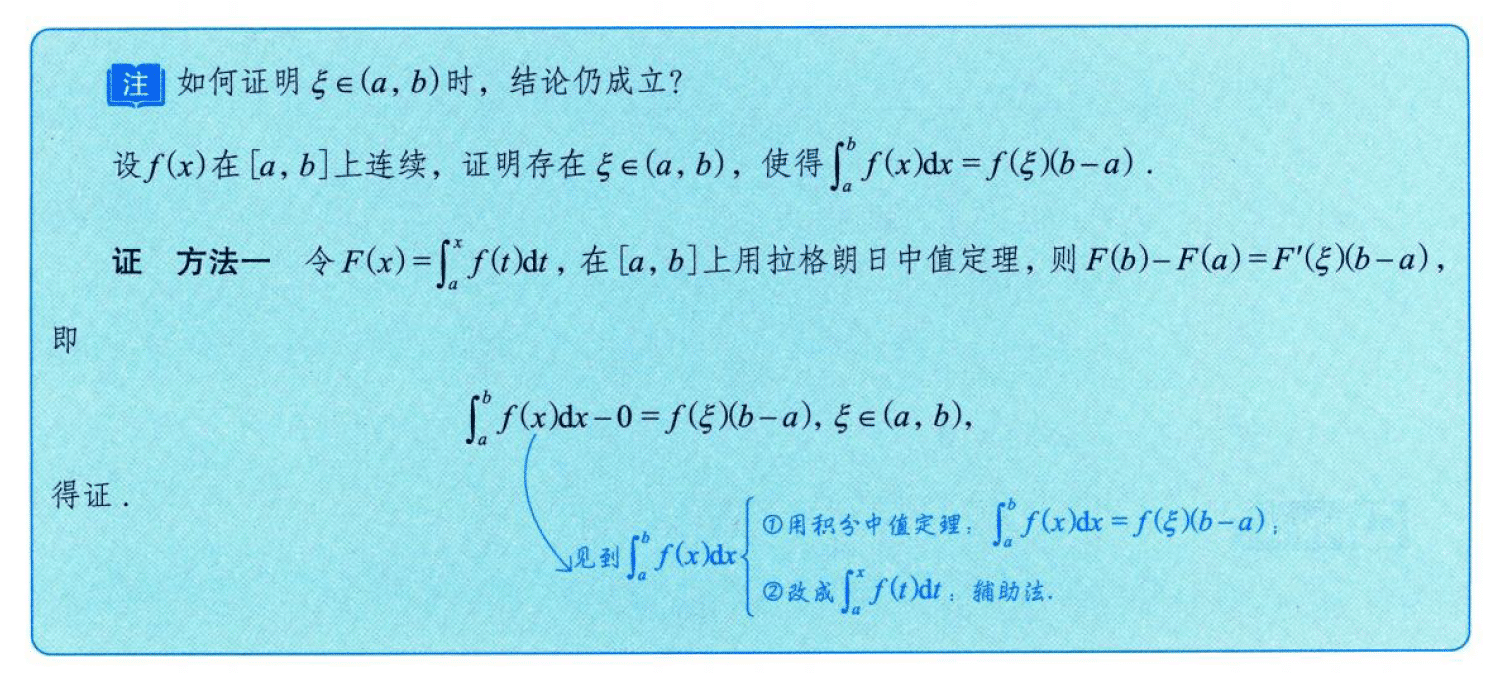 注 如何证明 ξ∈(a, b)时，结论仍成立？
设f(x)在[a, b]上连续，证明存在 ξ∈(a, b)，使得∫_a^b f(x)dx = f(ξ)(b−a)．
证 方法一 令F(x)=∫_a^x f(t)dt，在[a, b]上用拉格朗日中值定理，则F(b)−F(a)=F′(ξ)(b−a)，
即
∫_a^b f(x)dx−0=f(ξ)(b−a), ξ∈(a, b),
得证．
见到∫_a^b f(x)dx
①用积分中值定理：∫_a^b f(x)dx=f(ξ)(b−a)；
②改成∫_a^x f(t)dt：辅助法．